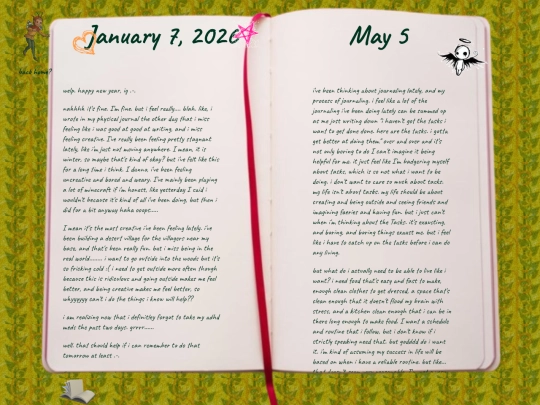 January 7, 2026
back home?
welp. happy new year, ig .-.
nahhhh it's fine. I'm fine. but i feel really.... bleh. like, i
wrote in my physical journal the other day that i miss
feeling like i was good at good at writing. and i miss
feeling creative. I've really been feeling pretty stagnant
lately, like i'm just not moving anywhere. I mean, it is
winter, so maybe that's kind of okay? but i've felt like this
for a long time i think. I dunno, i've been feeling
uncreative and bored and weary. I've mainly been playing
a lot of minecraft if i'm honest, like yesterday I said i
wouldn't because it's kind of all i've been doing, but then i
did for a bit anyway haha ooops.....
I mean it's the most creative i've been feeling lately. i've
been building a desert village for the villagers near my
base, and that's been really fun. but i miss being in the
real world........ i want to go outside into the woods but it's
so fricking cold :( i need to get outside more often though
because this is ridiculous and going outside makes me feel
better, and being creative makes me feel better, so
whyyyyyy can't i do the things i know will help???
i am realising now that i definitley forgot to take my adhd
meds the past two days. grrrr......
well that should help if i can remember to do that
tomorrow at least .-.
May 5
i've been thinking about journaling lately, and my
process of journaling. i feel like a lot of the
journaling i've been doing lately can be summed up
as me just writing down "i haven't got the tasks i
want to get done done. here are the tasks. i gotta
get better at doing them" over and over and it's
not only boring to do I can't imagine it being
helpful for me. it just feel like I'm badgering myself
about tasks, which is so not what i want to be
doing. i don't want to care so much about tasks.
my life isn't about tasks. my life should be about
creating and being outside and seeing friends and
imagining faeries and having fun. but i just can't
when i'm thinking about the Tasks. it's exausting,
and boring, and boring things exaust me. but i feel
like i have to catch up on the tasks before i can do
any living.
but what do i actually need to be able to live like i
want? i need food that's easy and fast to make,
enough clean clothes to get dressed, a space that's
clean enough that it doesn't flood my brain with
stress, and a kitchen clean enough that i can be in
there long enough to make food. I want a schedule
and routine that i follow, but i don't know if i
strictly speaking need that. but godddd do i want
it. i'm kind of assuming my success in life will be
based on when i have a reliable routine. but like...